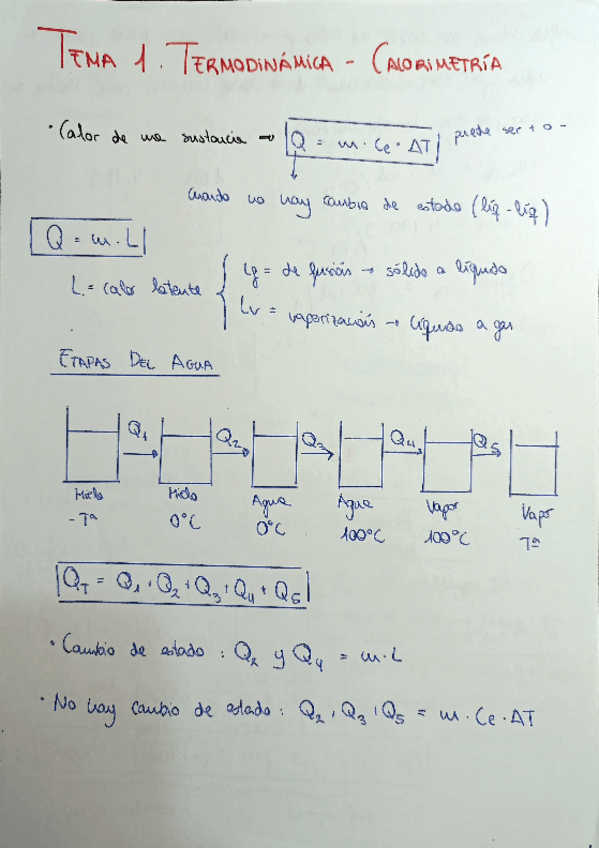 TEMA 1. TERMODINÁMICA - CALORIMETRÍA
• Calor de una sustancia → Q = m · Ce · ΔT puede ser + o -
cuando no hay cambio de estado (líq - líq)
Q = m · L
L = calor latente
Lf = de fusión → sólido a líquido
Lv = vaporización → líquido a gas
ETAPAS DEL AGUA
Q1 Q2 Q3 Q4 Q5
Hielo Hielo Agua Agua Vapor Vapor
- Tª 0°C 0°C 100°C 100°C Tª
QT = Q1 + Q2 + Q3 + Q4 + Q5
• Cambio de estado : Q2 y Q4 = m · L
• No hay cambio de estado : Q2, Q3, Q5 = m · Ce · ΔT